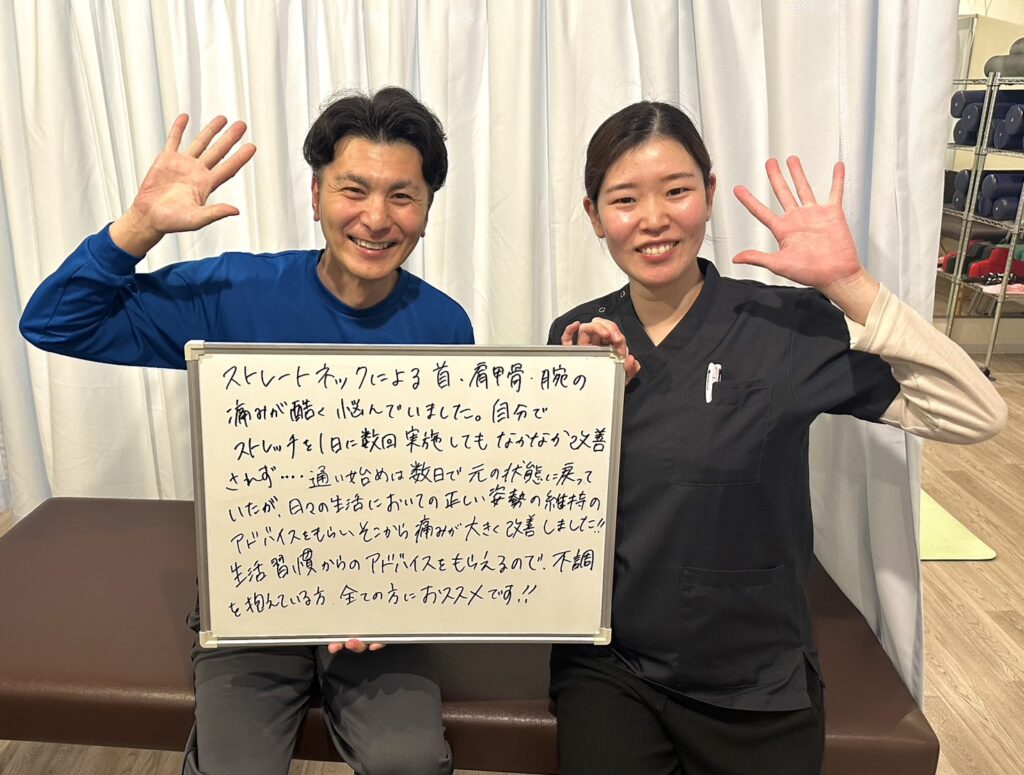 ストレートネックによる首、肩甲骨、腕の
痛みが酷く悩んでいました。自分で
ストレッチを1日に数回実施してもなかなか改善
されず‥‥通い始めは数日で元の状態に戻って
いたが、日々の生活においての正しい姿勢の維持の
アドバイスをもらい、そこから痛みが大きく改善しました!!
生活習慣からのアドバイスをもらえるので、不調
を抱えている方、全ての方におススメです!!